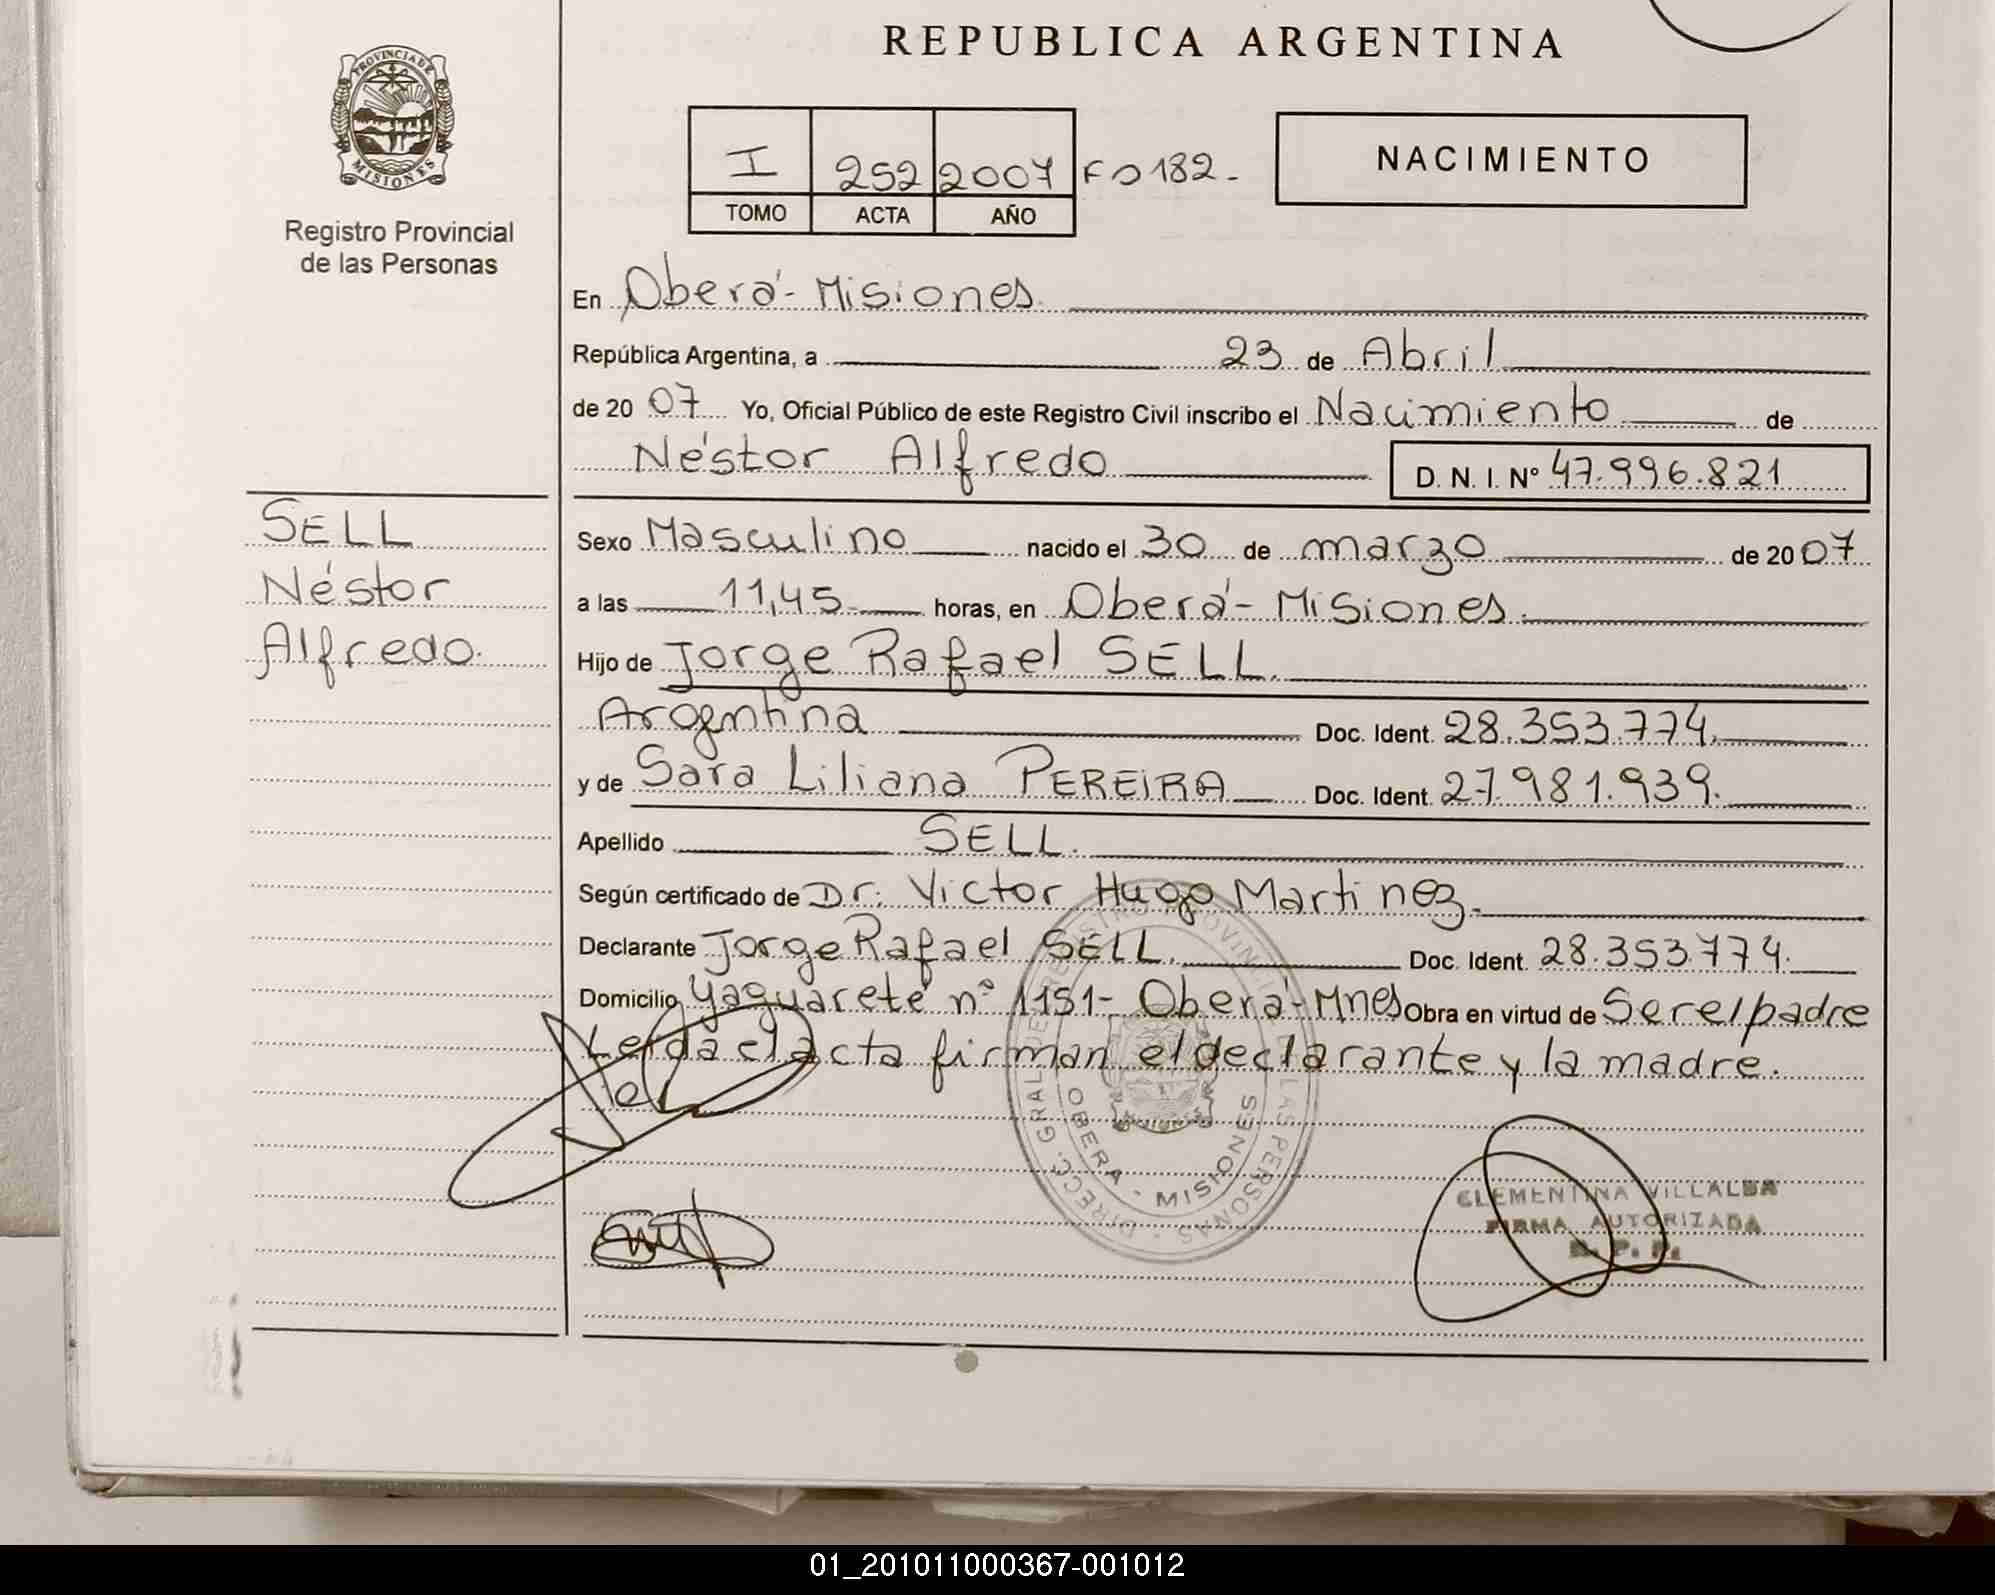 REPUBLICA ARGENTINA
PROVINCIA DE
MISIONES
Registro Provincial
de las Personas
I 252 2007 Fo 182.-
TOMO ACTA AÑO
NACIMIENTO
En Oberá - Misiones.
República Argentina, a 23 de Abril
de 20 07 Yo, Oficial Público de este Registro Civil inscribo el Nacimiento de
Néstor Alfredo D. N. I. Nº 47.996.821
SELL
Néstor
Alfredo.
Sexo Masculino nacido el 30 de marzo de 20 07
a las 11,45 horas, en Oberá - Misiones.
Hijo de Jorge Rafael SELL.
Argentina Doc. Ident. 28.353.774.
y de Sara Liliana PEREIRA Doc. Ident. 27.981.939.
Apellido SELL.
Según certificado de Dr. Victor Hugo Martinez.
Declarante Jorge Rafael SELL. Doc. Ident. 28.353.774.
Domicilio Yaguareté nº 1151- Oberá - Mnes Obra en virtud de Ser el padre
Leída el acta firman el declarante y la madre.
DIRECC. GRAL. DE REGISTRO PROVINCIAL LAS PERSONAS
OBERA - MISIONES
CLEMENTINA VILLALBA
FIRMA AUTORIZADA
01_201011000367-001012